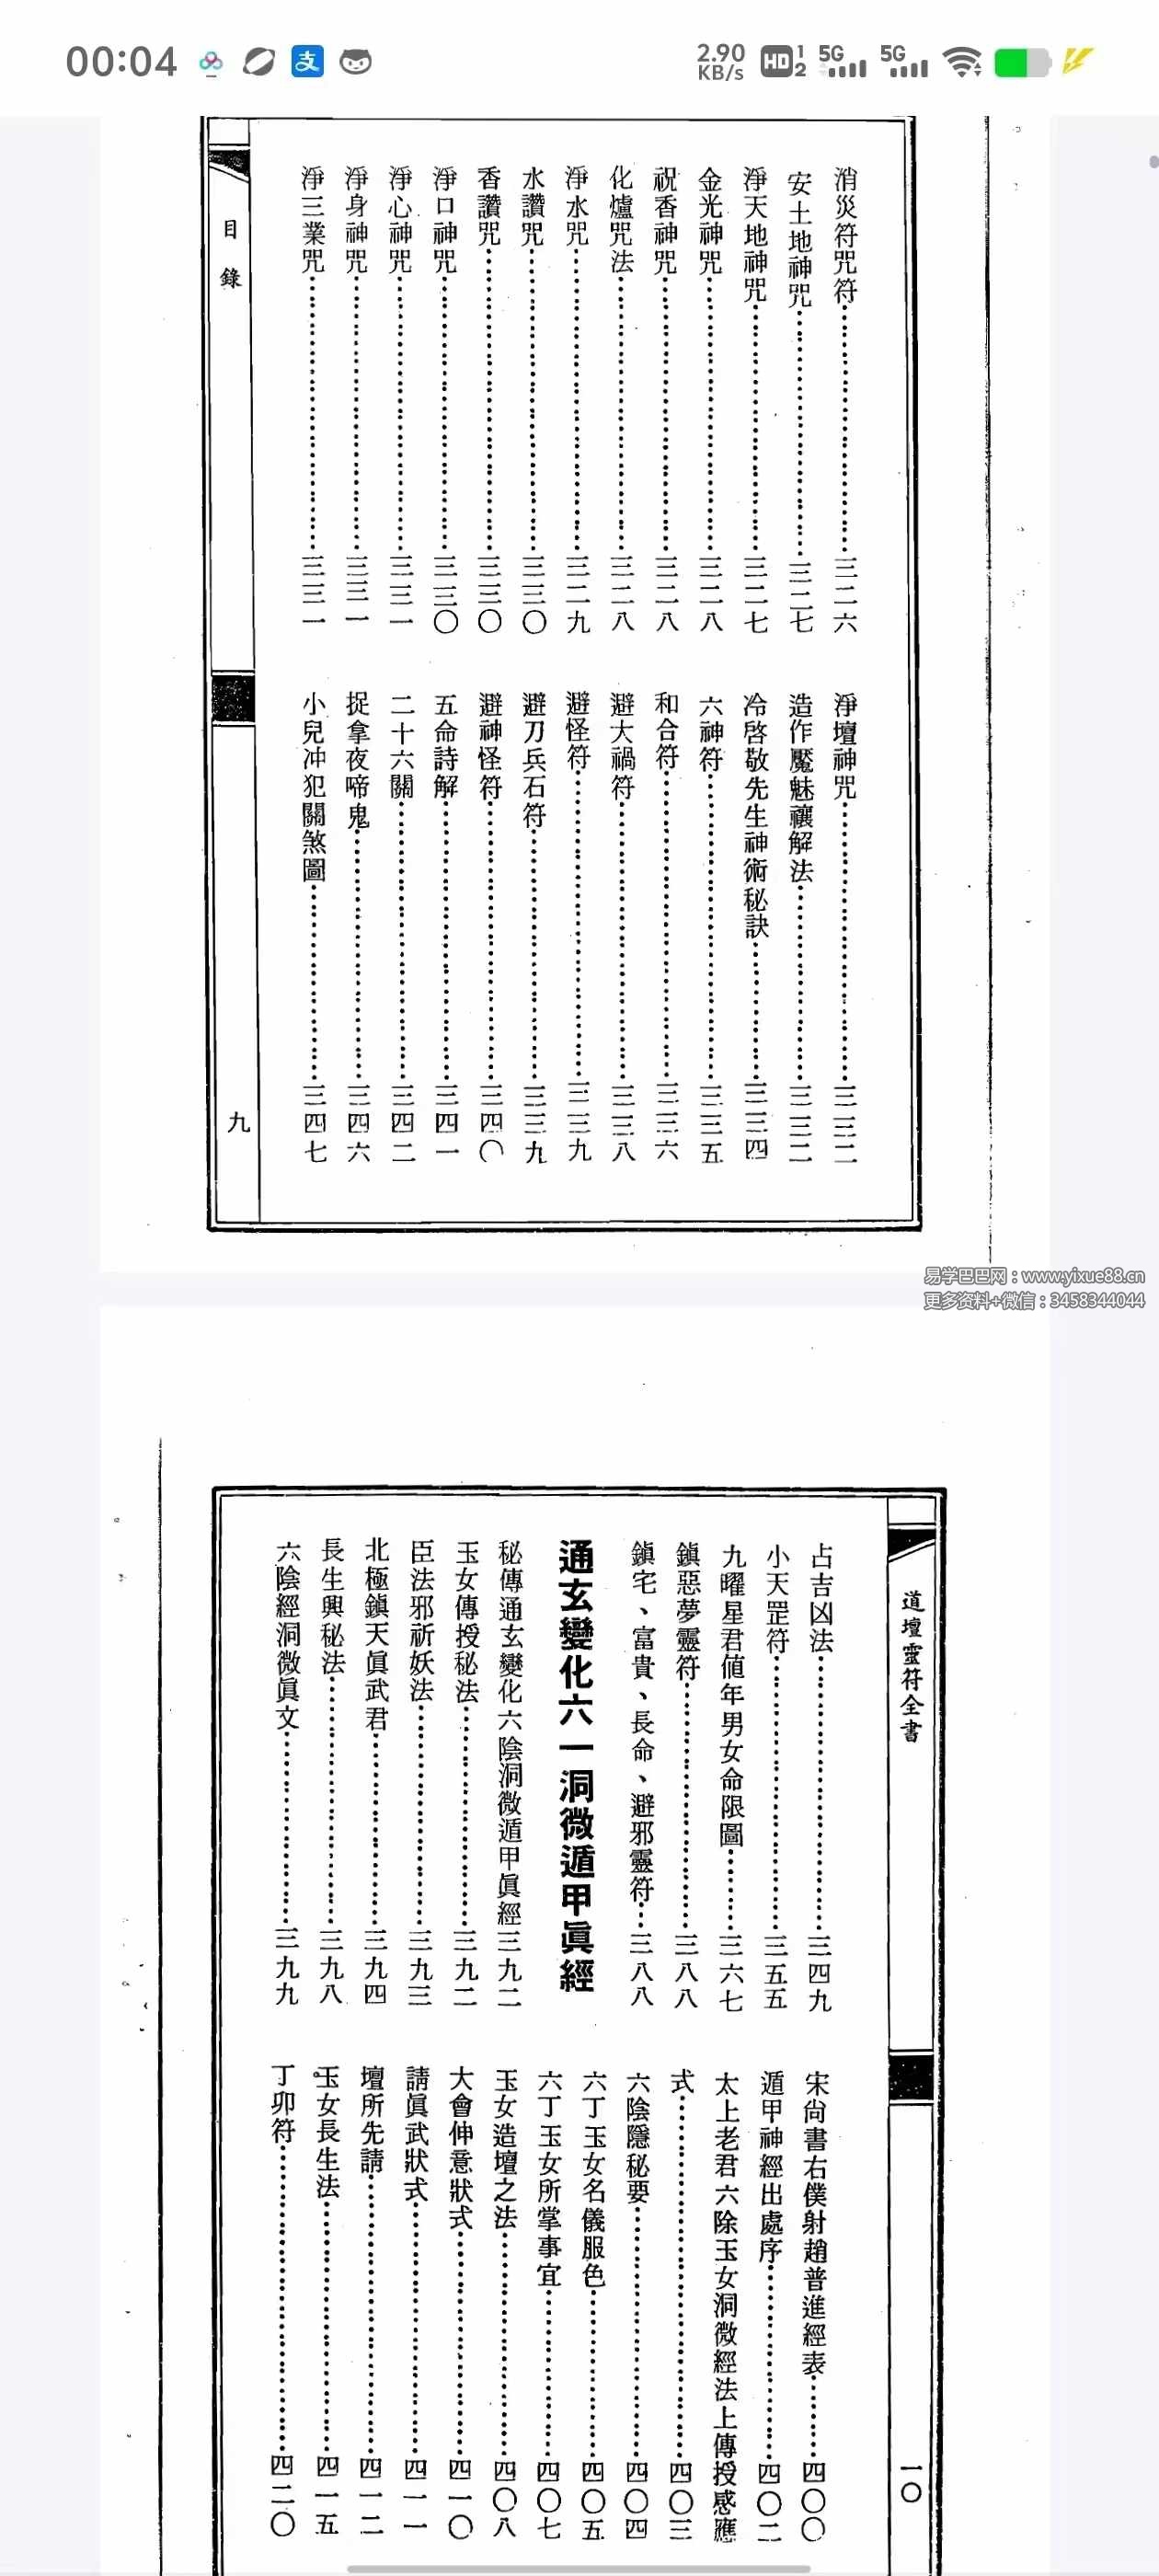 00:04
2.90
KB/s
HD 1 2
5G
5G
消災符咒符…………三二六
安土地神咒…………三二七
淨天地神咒…………三二七
金光神咒…………三二八
祝香神咒…………三二八
化爐咒法…………三二八
淨水咒…………三二九
水讚咒…………三三〇
香讚咒…………三三〇
淨口神咒…………三三〇
淨心神咒…………三三一
淨身神咒…………三三一
淨三業咒…………三三一
淨壇神咒…………三三二
造作魘魅禳解法…………三三二
冷啓敬先生神術秘訣…………三三四
六神符…………三三五
和合符…………三三六
避大禍符…………三三八
避怪符…………三三九
避刀兵石符…………三三九
避神怪符…………三四〇
五命詩解…………三四一
二十六關…………三四二
捉拿夜啼鬼…………三四六
小兒冲犯關煞圖…………三四七
目錄
九
易学巴巴网:www.yixue88.cn
更多资料+微信:3458344044
道壇靈符全書
一〇
占吉凶法…………三四九
小天罡符…………三五五
九曜星君值年男女命限圖…………三六七
鎮惡夢靈符…………三八八
鎮宅、富貴、長命、避邪靈符…三八八
通玄變化六一洞微遁甲眞經
秘傳通玄變化六陰洞微遁甲眞經三九二
玉女傳授秘法…………三九二
臣法邪祈妖法…………三九三
北極鎮天眞武君…………三九四
長生興秘法…………三九八
六陰經洞微眞文…………三九九
宋尙書右僕射趙普進經表…………四〇〇
遁甲神經出處序…………四〇二
太上老君六除玉女洞微經法上傳授感應
式…………四〇三
六陰隱秘要…………四〇四
六丁玉女名儀服色…………四〇五
六丁玉女所掌事宜…………四〇七
玉女造壇之法…………四〇八
大會伸意狀式…………四一〇
請眞武狀式…………四一一
壇所先請…………四一二
玉女長生法…………四一五
丁卯符…………四二〇